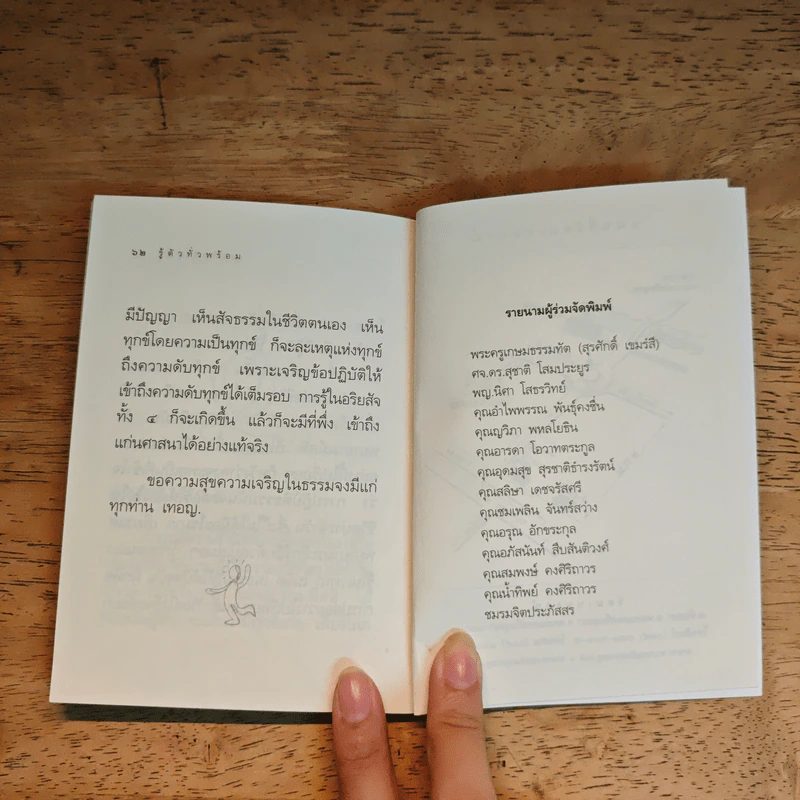 ๖๒ รู้ตัวทั่วพร้อม
มีปัญญา เห็นสัจธรรมในชีวิตตนเอง เห็น
ทุกข์โดยความเป็นทุกข์ ก็จะละเหตุแห่งทุกข์
ถึงความดับทุกข์ เพราะเจริญข้อปฏิบัติให้
เข้าถึงความดับทุกข์ได้เต็มรอบ การรู้ในอริยสัจ
ทั้ง ๔ ก็จะเกิดขึ้น แล้วก็จะมีที่พึ่ง เข้าถึง
แก่นศาสนาได้อย่างแท้จริง
ขอความสุขความเจริญในธรรมจงมีแก่
ทุกท่าน เทอญ.
รายนามผู้ร่วมจัดพิมพ์
พระครูเกษมธรรมทัต (สุรศักดิ์ เขมรํสี)
ศจ.ดร.สุชาติ โสมประยูร
พญ.นิศา โสธรวิทย์
คุณอำไพพรรณ พันธุ์คงชื่น
คุณญวิภา พหลโยธิน
คุณอารดา โอวาทตระกูล
คุณอุดมสุข สุรชาติธำรงรัตน์
คุณสลิษา เดชจรัสศรี
คุณชมเพลิน จันทร์สว่าง
คุณอรุณ อักขระกุล
คุณอภัสนันท์ สืบสันติวงศ์
คุณสมพงษ์ คงศิริถาวร
คุณน้ำทิพย์ คงศิริถาวร
ชมรมจิตประภัสสร